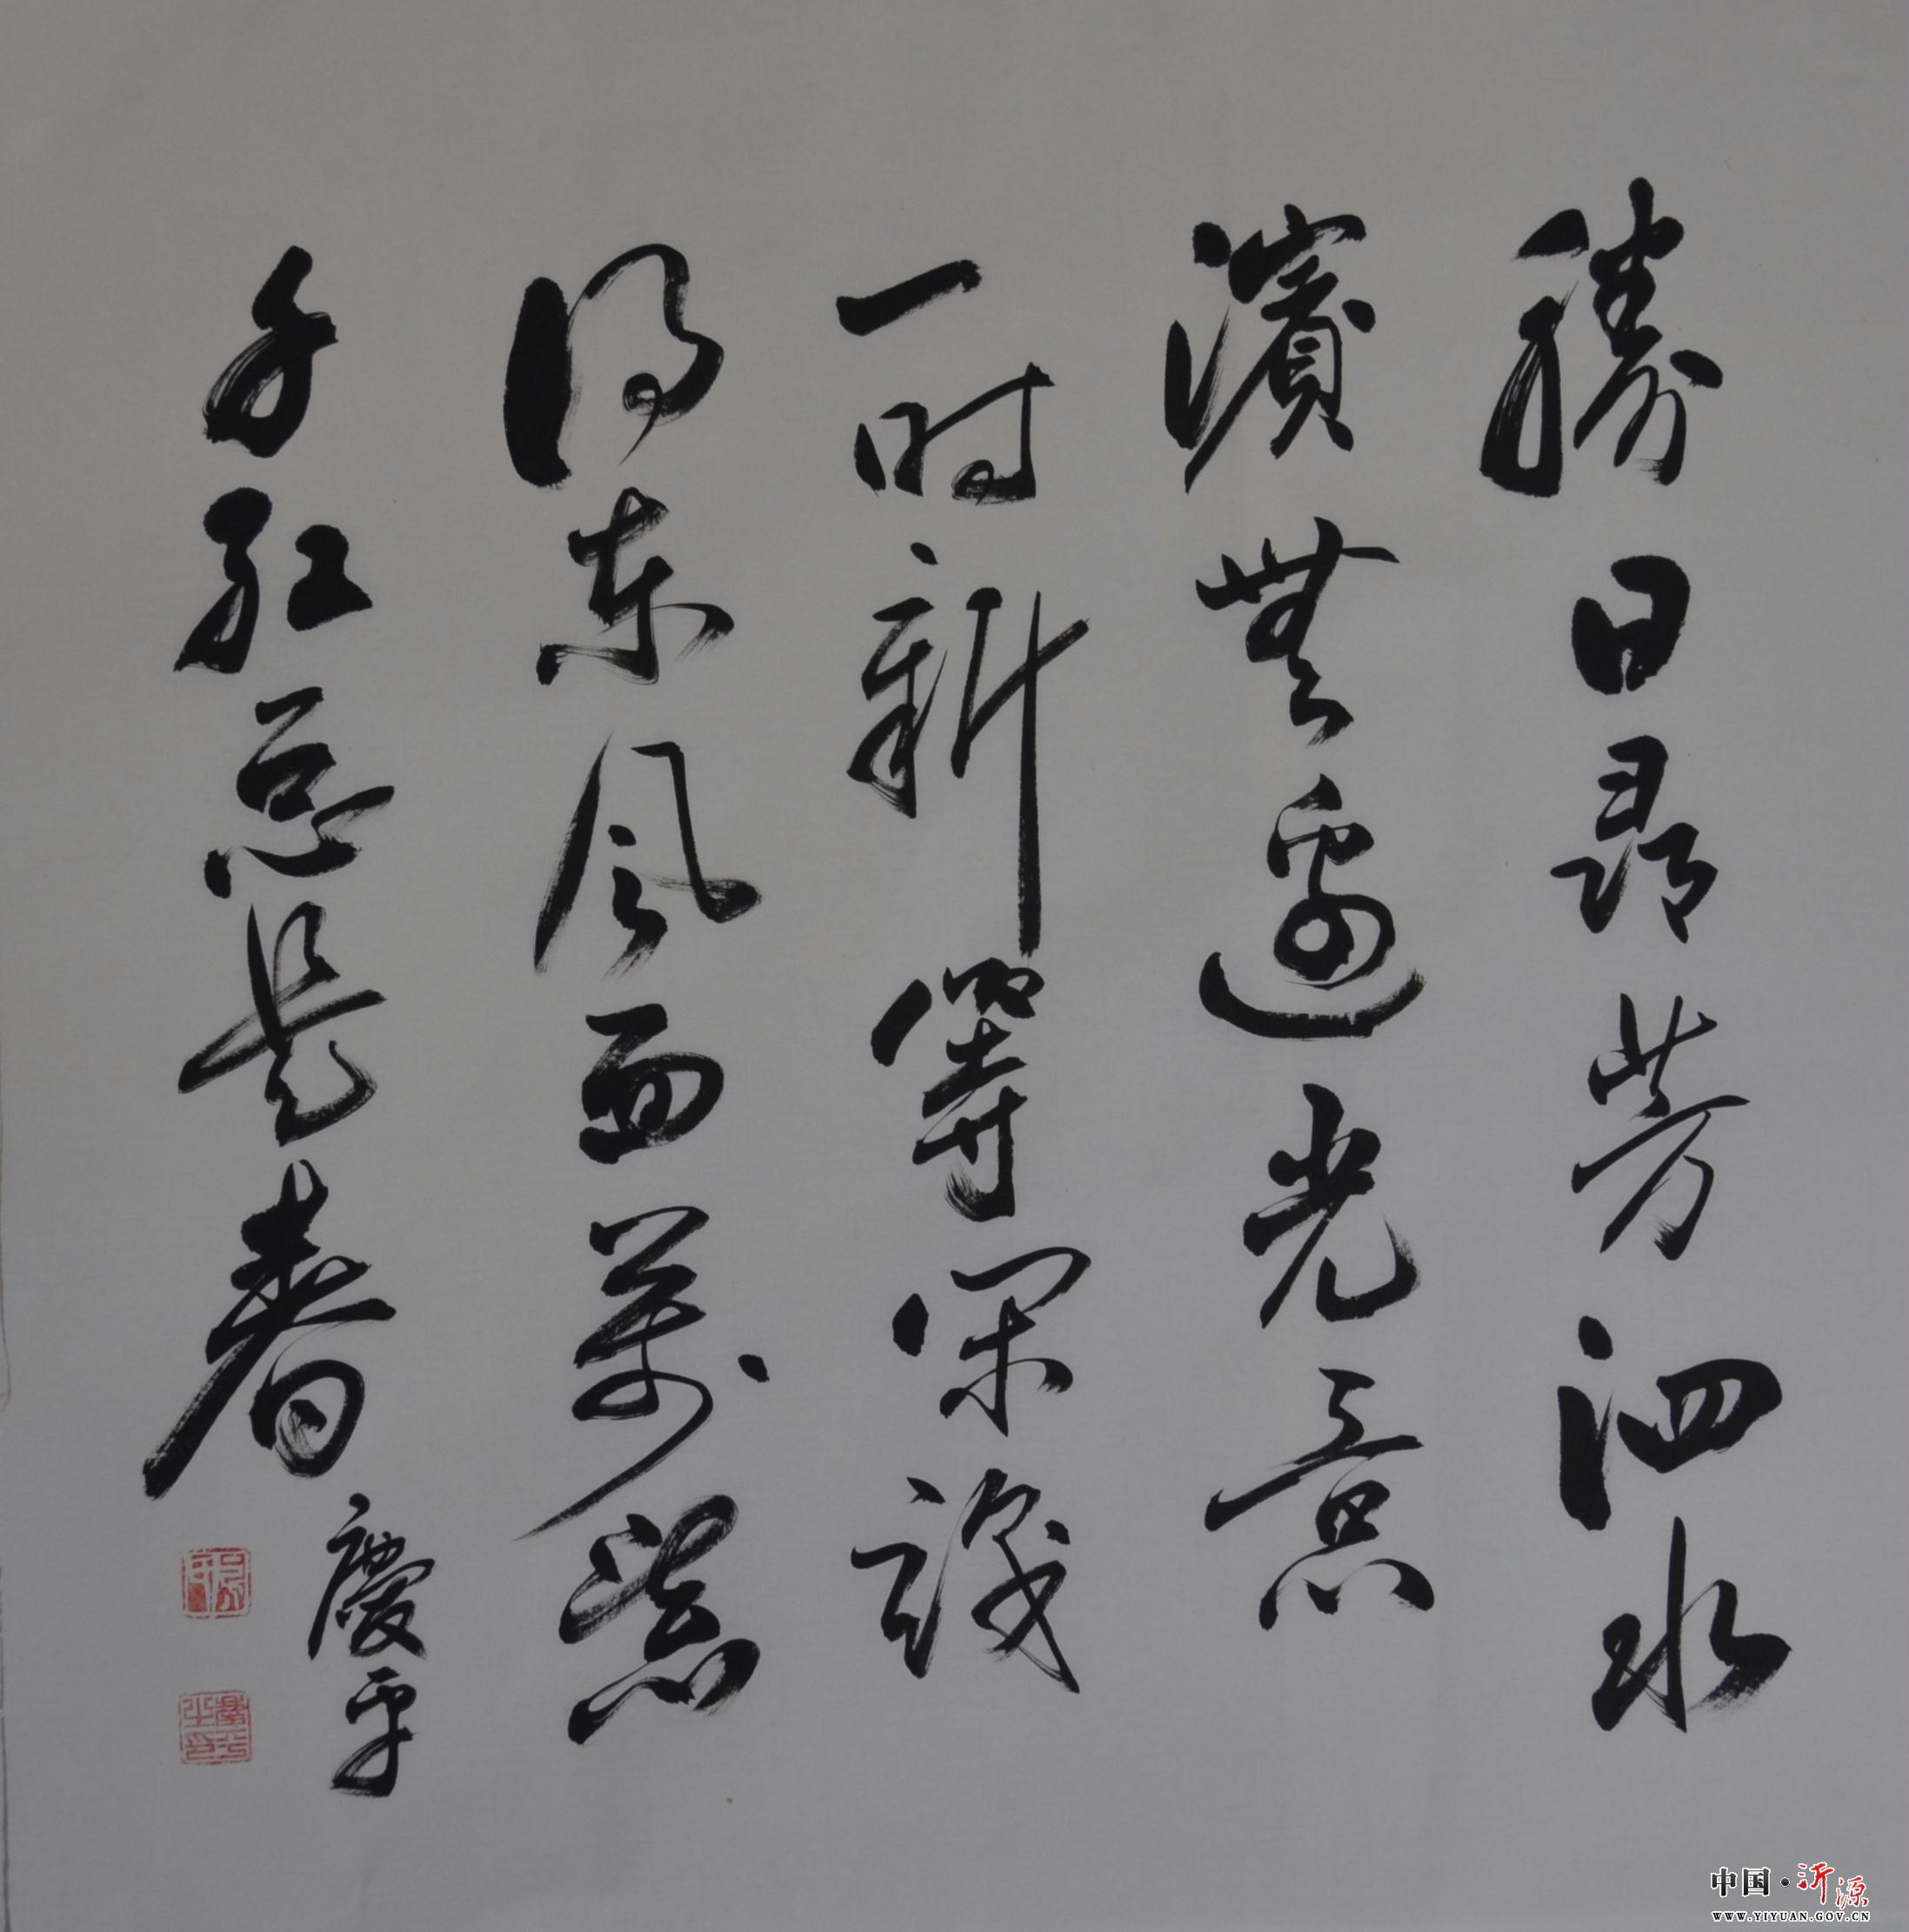 勝日尋芳泗水
濱無邊光景
一时新等闲識
得东风面萬紫
千红总是春
慶平
中国·沂源
WWW.YIYUAN.GOV.CN